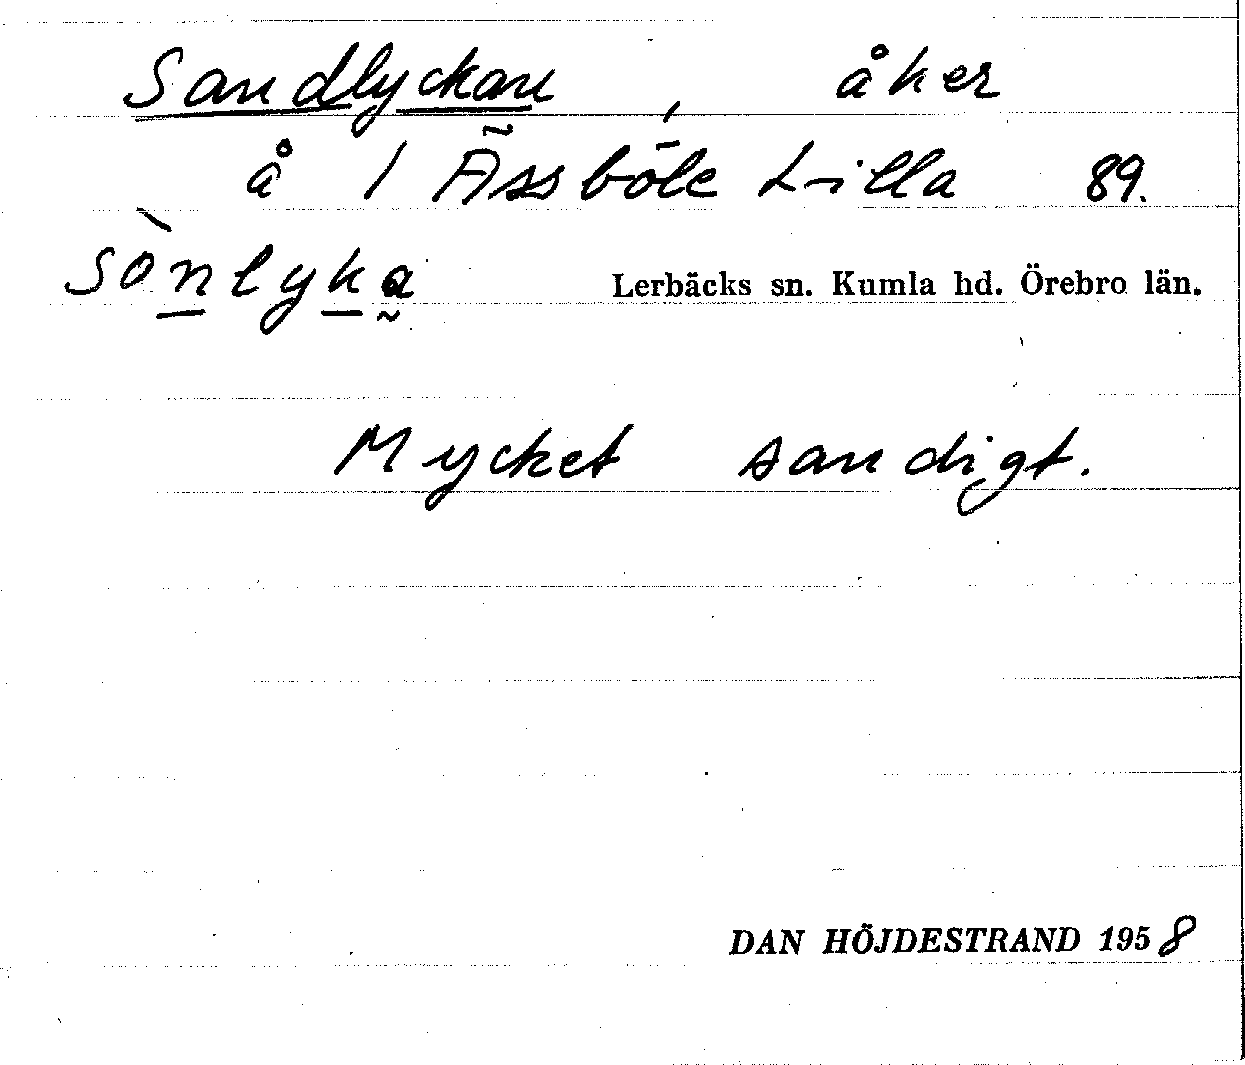 Sandlyckan, åker
å 1 Ässböle Lilla 89.
sònlyka
Lerbäcks sn. Kumla hd. Örebro län.
Mycket sandigt.
DAN HÖJDESTRAND 1958